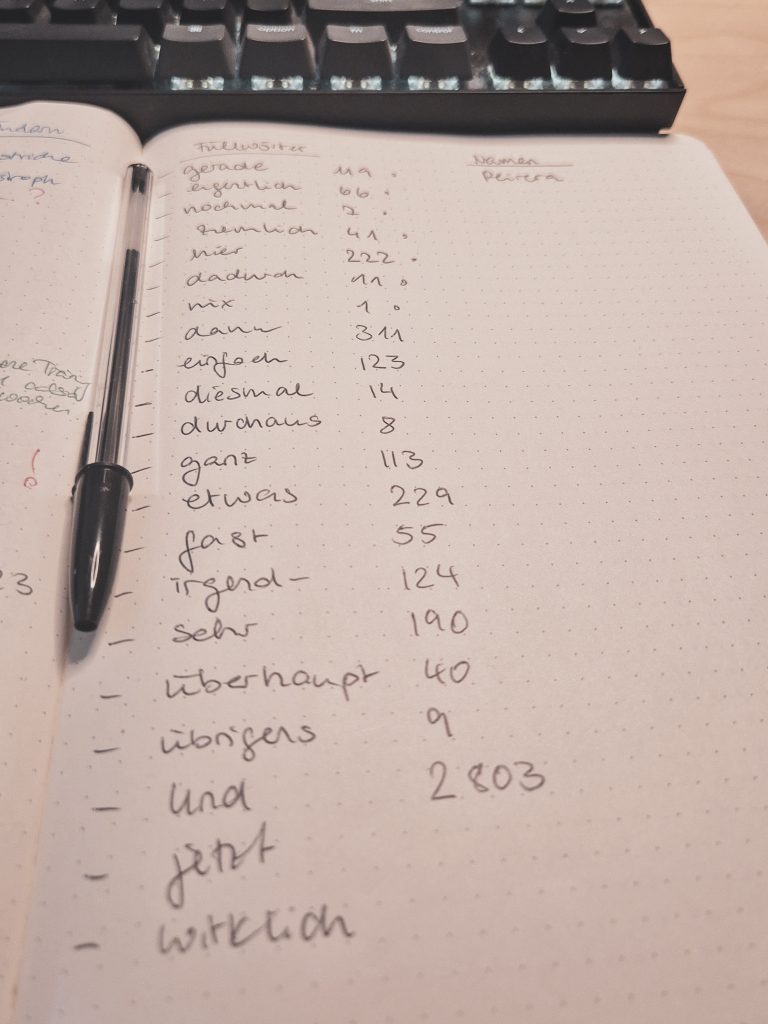 option
ndern
striche
stroph
?
!
23
Füllwörter
Namen
Peirera
– gerade 119 .
– eigentlich 66 .
– nochmal 7 .
– ziemlich 41 .
– hier 222 .
– dadurch 11 .
– nix 1 .
– dann 311
– einfach 123
– diesmal 14
– durchaus 8
– ganz 113
– etwas 229
– fast 55
– irgend– 124
– sehr 190
– überhaupt 40
– übrigens 9
– und 2803
– jetzt
– wirklich